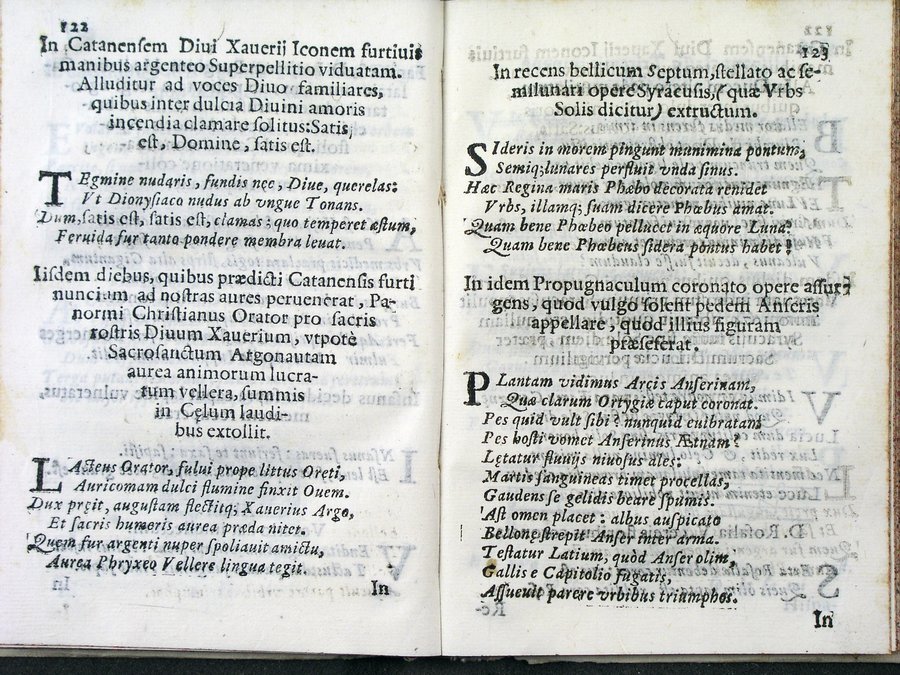 122
In Catanensem Diui Xauerii Iconem furtiuis
manibus argenteo Superpellitio viduatam.
Alluditur ad voces Diuo familiares,
quibus inter dulcia Diuini amoris
incendia clamare solitus: Satis
est, Domine, satis est.
TEgmine nudaris, fundis nec, Diue, querelas:
Vt Dionysiaco nudus ab vngue Tonans.
Dum, satis est, satis est, clamas: quo temperet æstum,
Feruida fur tanto pondere membra leuat.
Iisdem diebus, quibus prædicti Catanensis furti
nuncium ad nostras aures peruenerat, Pa-
normi Christianus Orator pro sacris
rostris Diuum Xauerium, vtpotè
Sacrosanctum Argonautam
aurea animorum lucra-
tum vellera, summis
in Cęlum laudi-
bus extollit.
LActeus Orator, fului prope littus Oreti,
Auricomam dulci flumine finxit Ouem.
Dux pręit, augustam flectitq; Xauerius Argo,
Et sacris humeris aurea præda nitet.
Quem fur argenti nuper spoliauit amictu,
Aurea Phryxeo Vellere lingua tegit.
In
123
In recens bellicum Septum, stellato ac se-
milunari opere Syracusis, (quæ Vrbs
Solis dicitur) extructum.
SIderis in morem pingunt munimina pontum,
Semiq; lunares perfluit vnda sinus.
Hæc Regina maris Phœbo decorata renidet
Vrbs, illamq; suam dicere Phœbus amat.
Quam bene Phœbeo pellucet in æquore Luna!
Quam bene Phœbeus sidera pontus habet!
In idem Propugnaculum coronato opere assur-
gens, quod vulgo solent pedem Anseris
appellare, quòd illius figuram
præseferat.
PLantam vidimus Arcis Anserinam,
Quæ clarum Ortygiæ caput coronat.
Pes quid vult sibi? nunquid euibratam
Pes hosti vomet Anserinus Ætnam?
Lętatur fluuijs niuosus ales:
Martis sanguineas timet procellas,
Gaudens se gelidis beare spumis.
Ast omen placet: albus auspicatò
Bellonę strepit Anser inter arma.
Testatur Latium, quòd Anser olim,
Gallis e Capitolio fugatis,
Assueuit parere vrbibus triumphos.
In